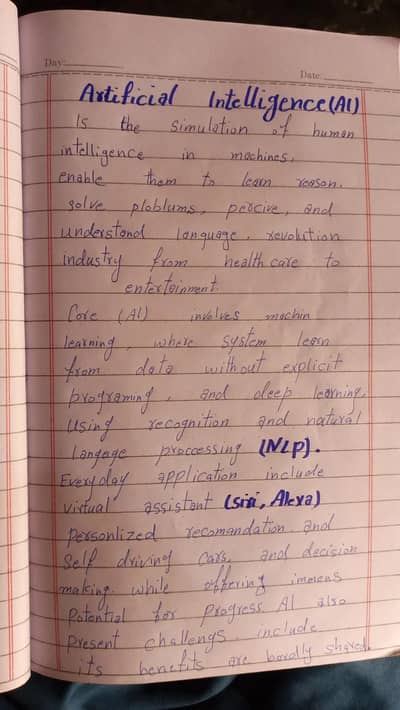 Day:
Date:
Artificial Intelligence (AI)
Is the simulation of human
intelligence in machines,
enable them to learn reason.
solve ploblums, percive, and
understand language, revolution
industry from health care to
entertainment.
Core (AI) involves machin
learning, where system learn
from data without explicit
programing, and deep learning,
Using recognition and natural
langage proccessing (NLP).
Everyday application include
virtual assistant (Siri, Alexa)
personlized recomandation and
Self driving cars, and decision
making. while offering immens
Potential for progress AI also
present challengs. include
its benefits are boadly shared.